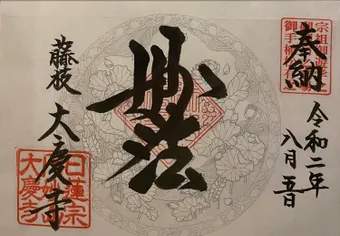 奉納
令和二年
八月五日
妙法
藤枝
大慶寺
日蓮宗
大慶寺